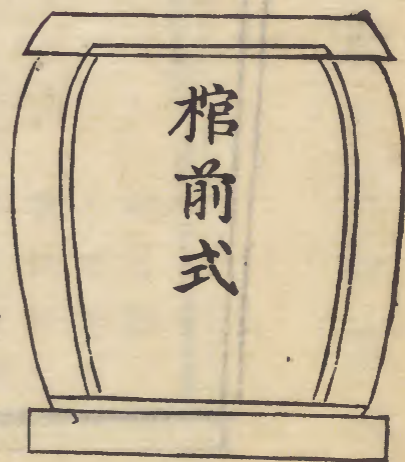 棺前式